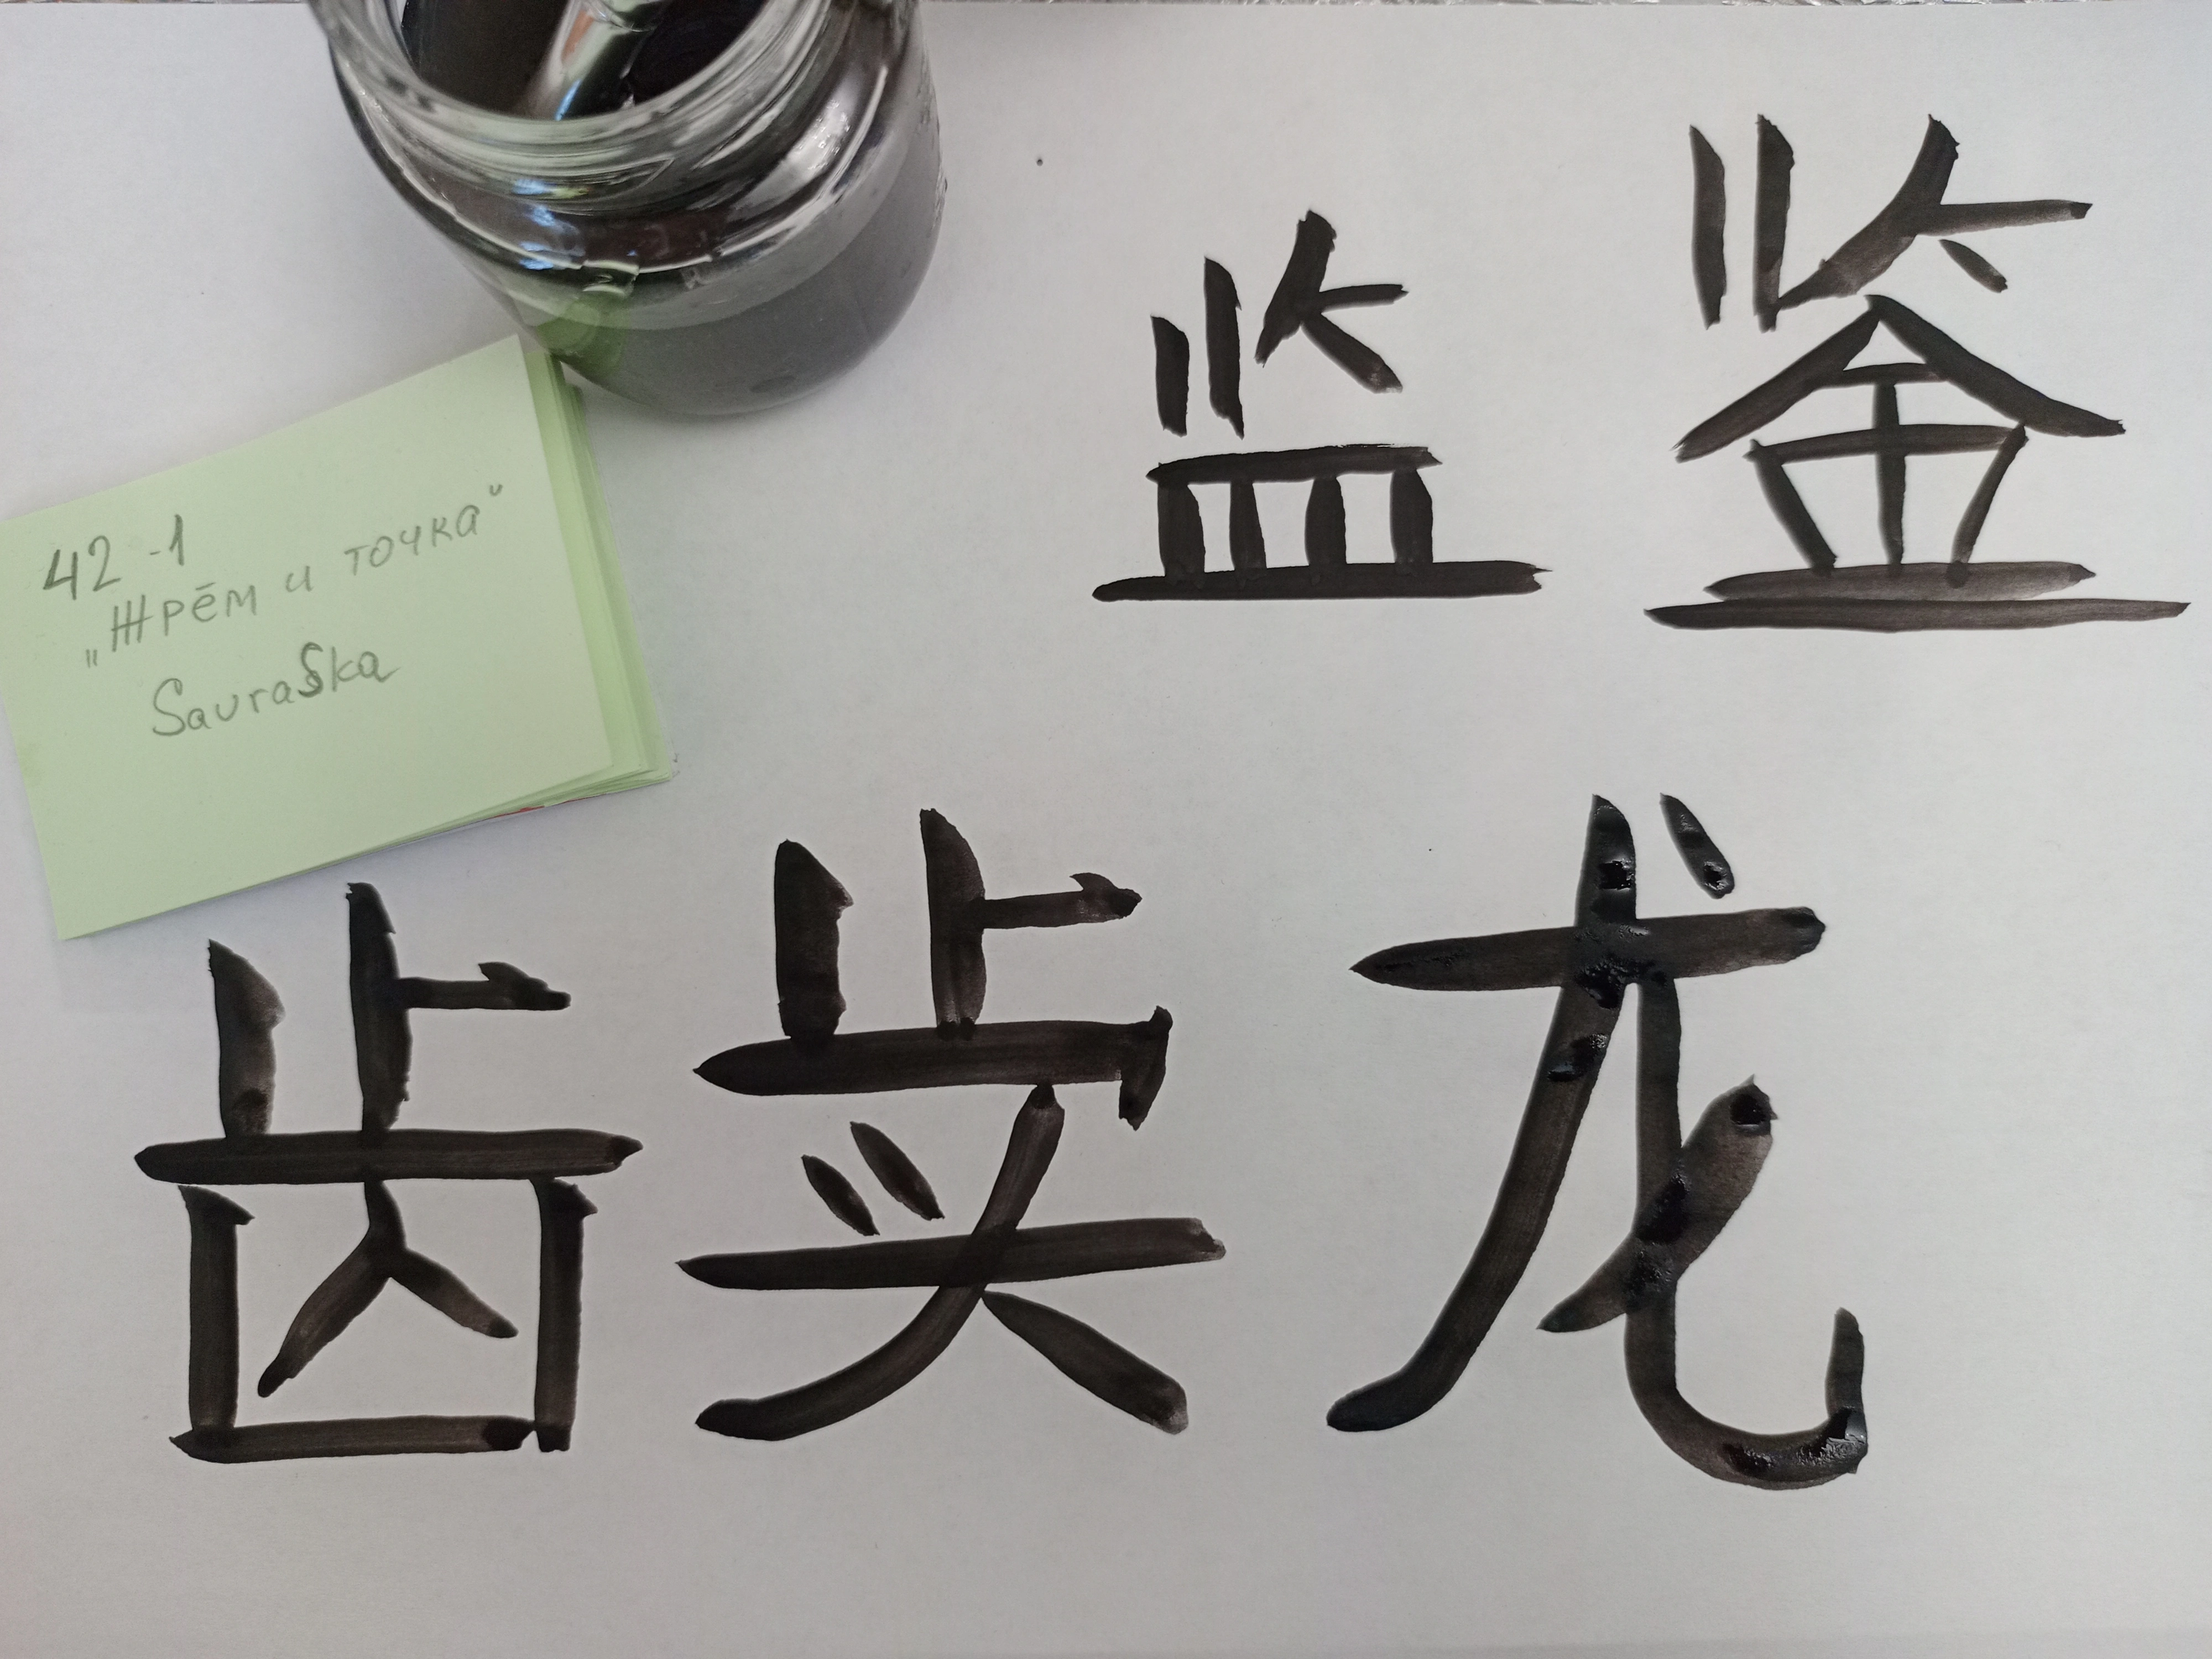 监 鉴
42 -1
„Жрём и точка“
SavraSka
齿 龙